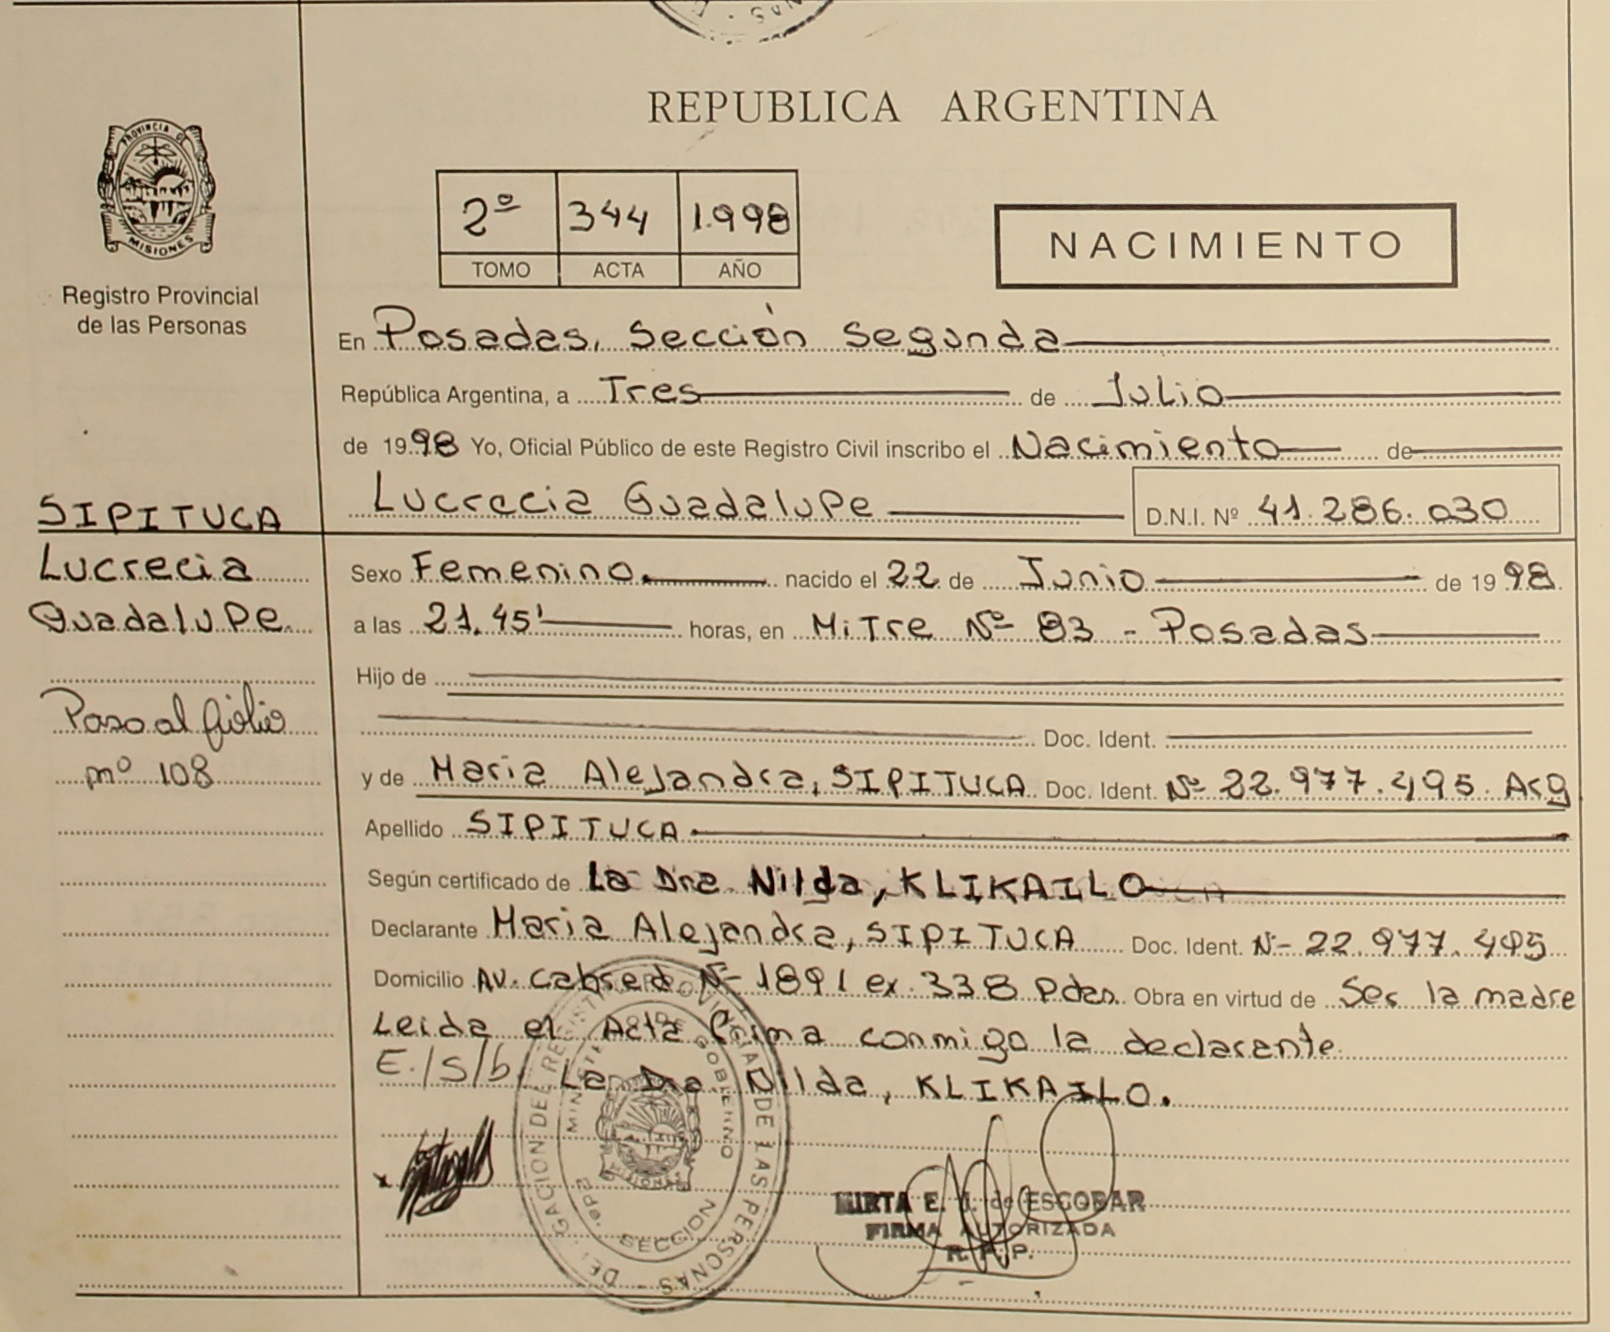 REPUBLICA ARGENTINA
PROVINCIA DE
MISIONES
Registro Provincial
de las Personas
2º 344 1.998
TOMO ACTA AÑO
NACIMIENTO
En Posadas, Sección Segunda
República Argentina, a Tres de Julio
de 1998 Yo, Oficial Público de este Registro Civil inscribo el Nacimiento de
Lucrecia Guadalupe D.N.I. Nº 41.286.030
SIPITUCA
Lucrecia
Guadalupe
Paso al folio
nº 108
Sexo Femenino. nacido el 22 de Junio de 1998
a las 21,45' horas, en Mitre Nº 83 - Posadas
Hijo de
Doc. Ident.
y de Maria Alejandra, SIPITUCA Doc. Ident. Nº 22.977.495. Arg
Apellido SIPITUCA
Según certificado de La Dra. Nilda, KLIKAILO
Declarante Maria Alejandra, SIPITUCA Doc. Ident. Nº 22.977.495
Domicilio Av. Cabred Nº 1891 ex. 338 Pdas. Obra en virtud de Ser la madre
Leida el Acta firma conmigo la declarante.
E./S/b. La Dra. Nilda, KLIKAILO.
DELEGACION DEL REGISTRO PROVINCIAL DE LAS PERSONAS
MINISTERIO DE GOBIERNO
SECCION
MISIONES
MIRTA E. J. de ESCOBAR
FIRMA AUTORIZADA
R. P. P.